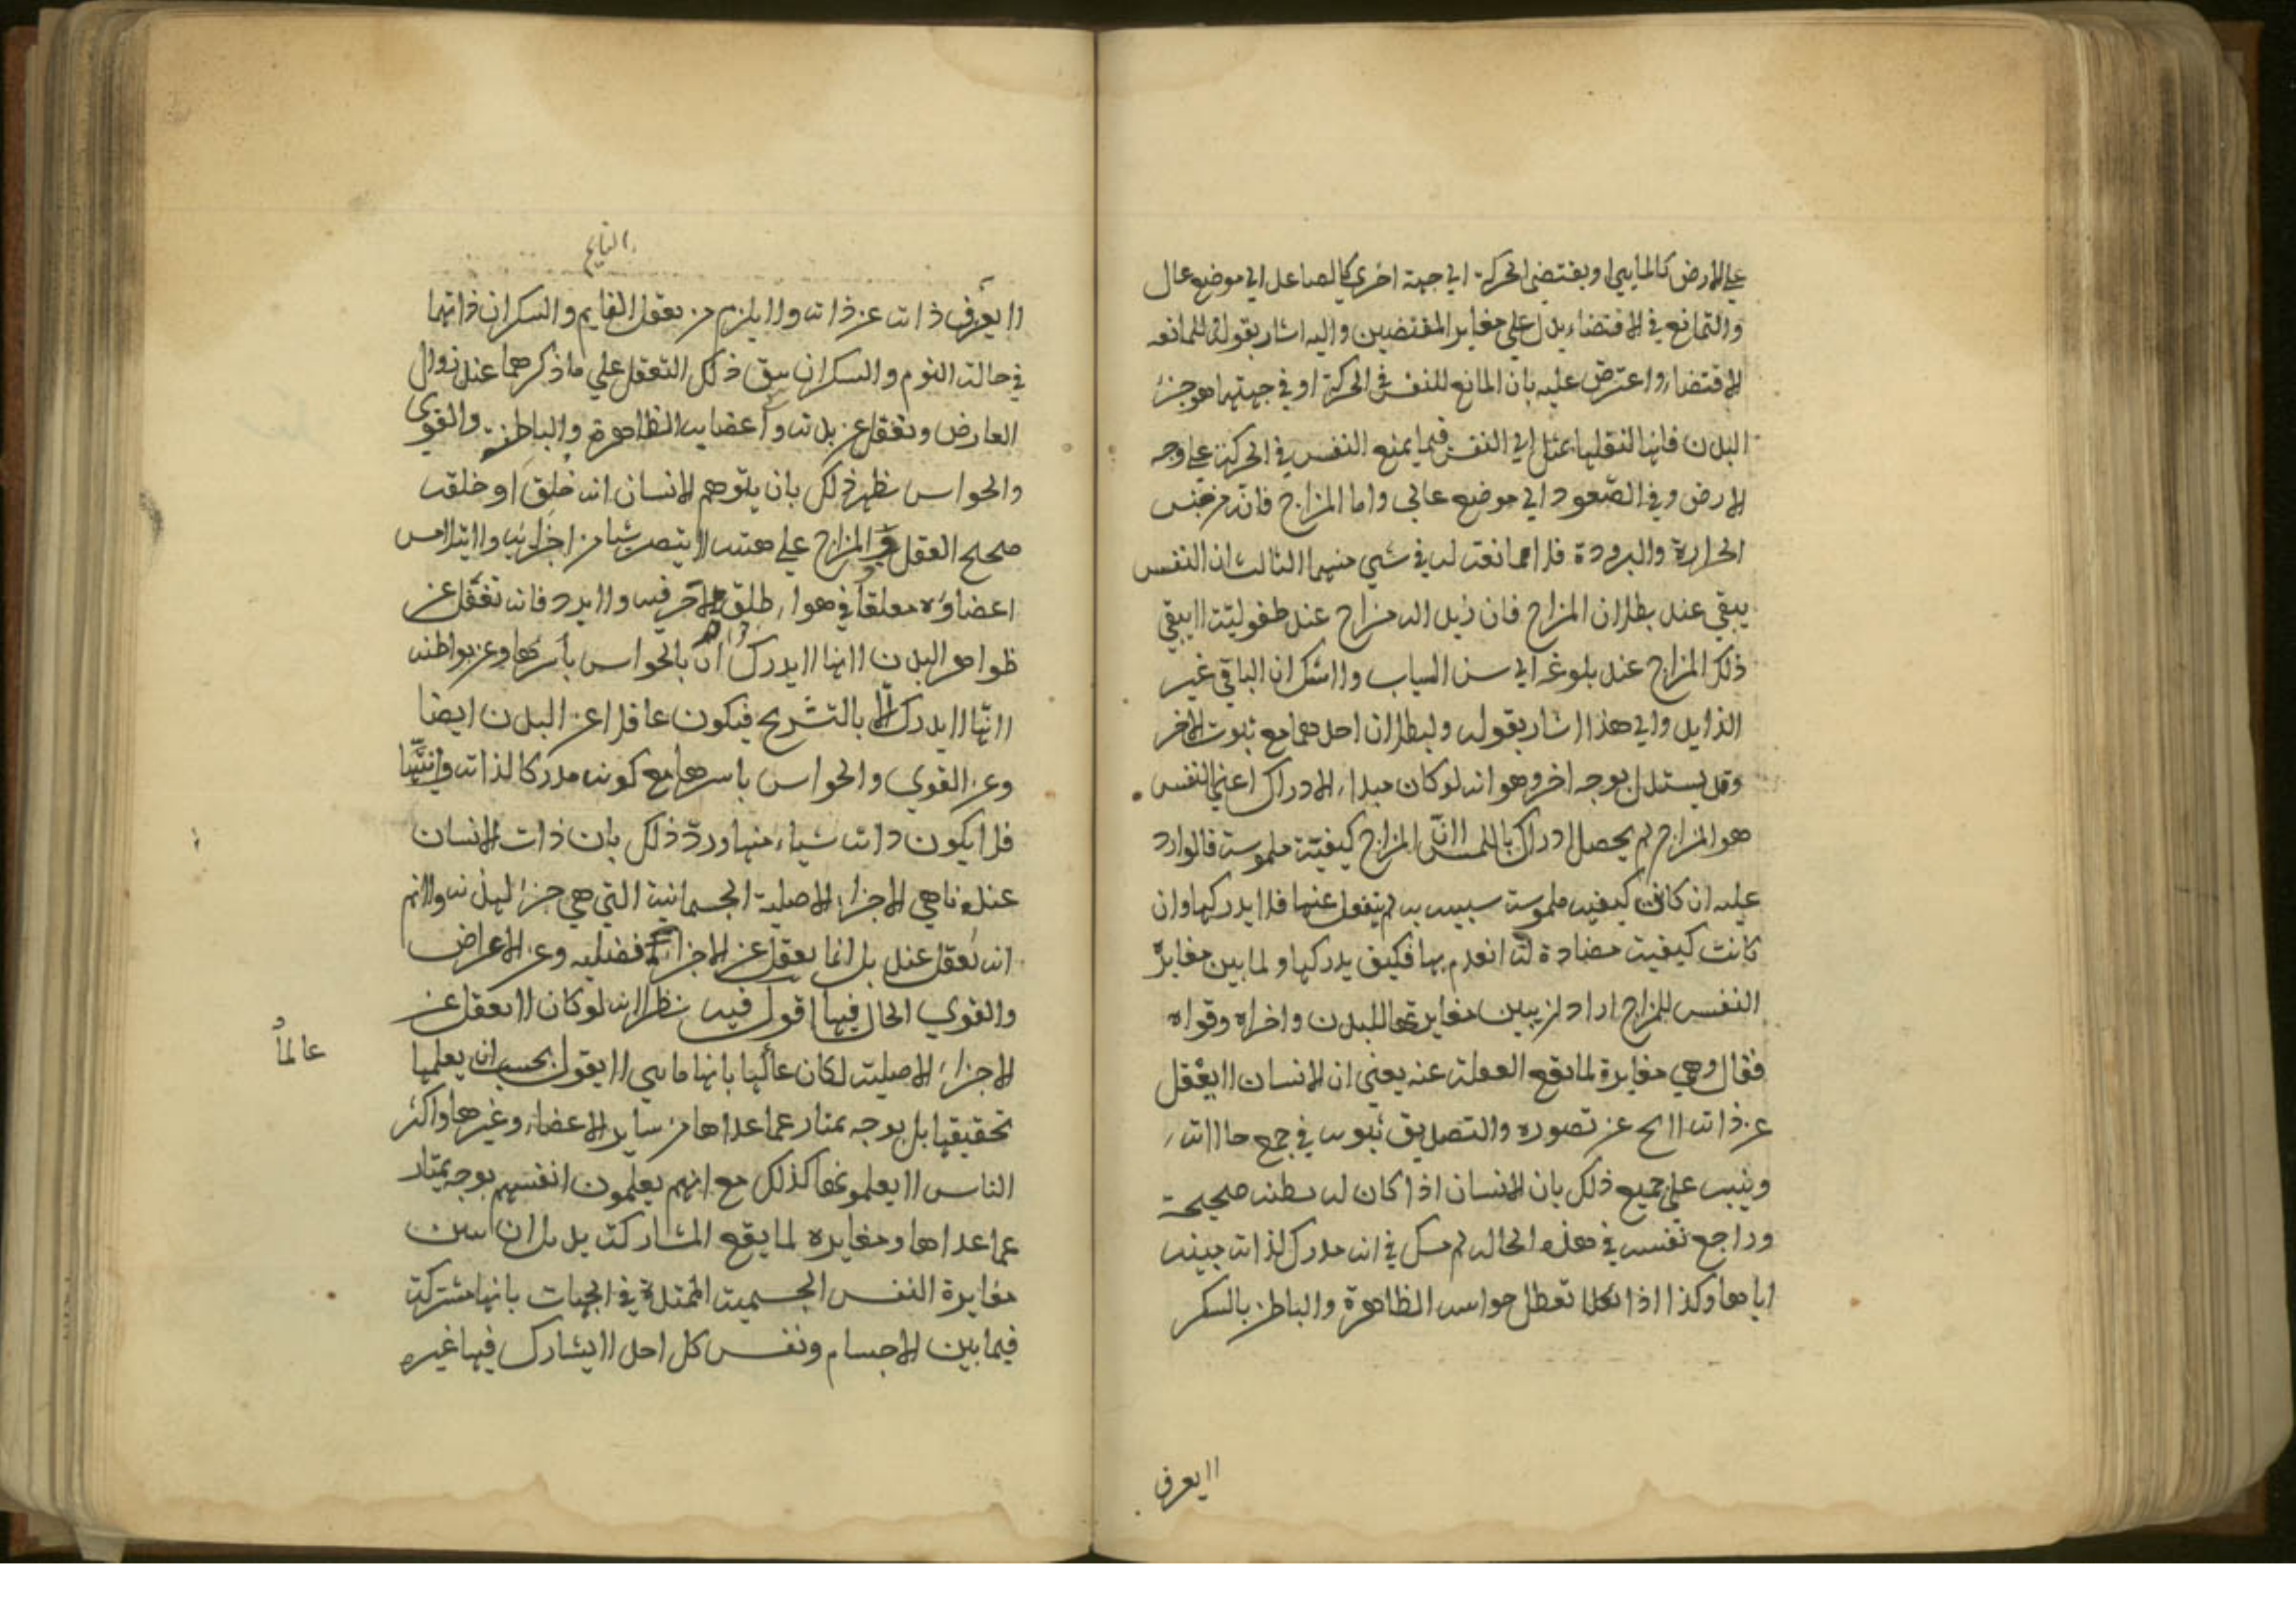 علي الارض كالماشي او يقتضي الحركة الي جهة اخري كالصاعد الي موضع عال
والتمانع في الاقتضاء يدل علي مغاير المقتضيين واليه اشار بقوله للمانعه
الاقتضاء واعترض عليه بان المانع للنفس في الحركة او في جهتها هو جزء
البدن فانها لثقلها يميل الي النفس فيما يمنع النفس في الحركة علي وجه
الارض وفي الصعود الي موضع عالي واما المزاج فانه من جنس
الحرارة والبرودة فلا ممانعة له في شي منهما الثالث ان النفس
يبقي عند بطلان المزاج فان زيد اله مزاج عند طفوليته لا يبقي
ذلك المزاج عند بلوغه الي سن الساب ولا شك ان الباقي غير
الذايل والي هذا اشار بقوله ولبطلان احدهما مع ثبوت الاخر
وقد يستدل بوجه اخر وهو انه لو كان مبداء الادراك اعني النفس
هو المزاج لم يحصل ادراك باللمس لان المزاج كيفية ملموسة فالوارد
عليه ان كان كيفيه ملموسة سبيه به لم ينفعل عنها فلا يدركها وان
كانت كيفية مضادة له انعدم بها فكيف يدركها ولما بين مغايرة
النفس للمزاج اراد ان يبين مغايرتها للبدن واجزاه وقواه
فقال وهي مغايرة لما يقع الغفلة عنه يعني ان الانسان لا يغفل
عن ذاته لا عن تصوره والتصديق ثبوته في جمع حالاته
وينبه علي جميع ذلك بان الانسان اذا كان له فطنه صحيحة
وراجع نفسه في هذه الحاله لم يشك في انه مدرك لذاته
اياها وكذا اذا تعطل حواسه الظاهرة والباطن بالسكر
لا يعرف
النايم
لا يعرف ذاته عن ذاته ولا يلزم من تعقل النايم والسكران ذاتهما
في حالة النوم والسكران يبق ذلك التعقل علي ما ذكرهما عند زوال
العارض وتغفل عن بدنه واعضايه الظاهرة والباطنة والقوي
والحواس يظهر ذلك بان يتوهم الانسان انه خلق او خلقه
صحيح العقل والمزاج علي هيئة لا يبصر شيا من اجزايه ولا يتلامس
اعضاوه معلقا في هواء طلق لا حر فيه ولا برد فانه تغفل عن
ظواهر البدن لانها لا يدرك الا بالحواس باسرها وعن بواطنه
لانها لا يدرك الا بالتشريح فيكون غافلا عن البدن ايضا
وعن القوي والحواس باسرها مع كونه مدركا لذاته وانيتها
فلا يكون ذاته شياء منها ورد ذلك بان ذات الانسان
عندنا هي الاجزاء الاصلية الجسمانية التي هي جزء لبدنه ولا نم
انه يغفل عنه بل انما يغفل عن الاجزاء الفضليه وعن الاعراض
والقوي الحال فيها اقول فيه نظر لانه لو كان لا يغفل عن
الاجزاء الاصلية لكان عالما بانها ماهي لا يقول بحسب ان يعلمها
عالما
تحقيقها بل بوجه يمتاز عما عداها من ساير الاعضاء وغيرها واكثر
الناس لا يعلمونها كذلك مع انهم يعلمون انفسهم بوجه يمتاز
عما عداها ومغايره لما يقع المشاركة به يريد ان يبين
مغايرة النفس الجسمية الممتدة في الجهات بانها مشتركة
فيما بين الاجسام ونفس كل احد لا يشارك فيها غيره